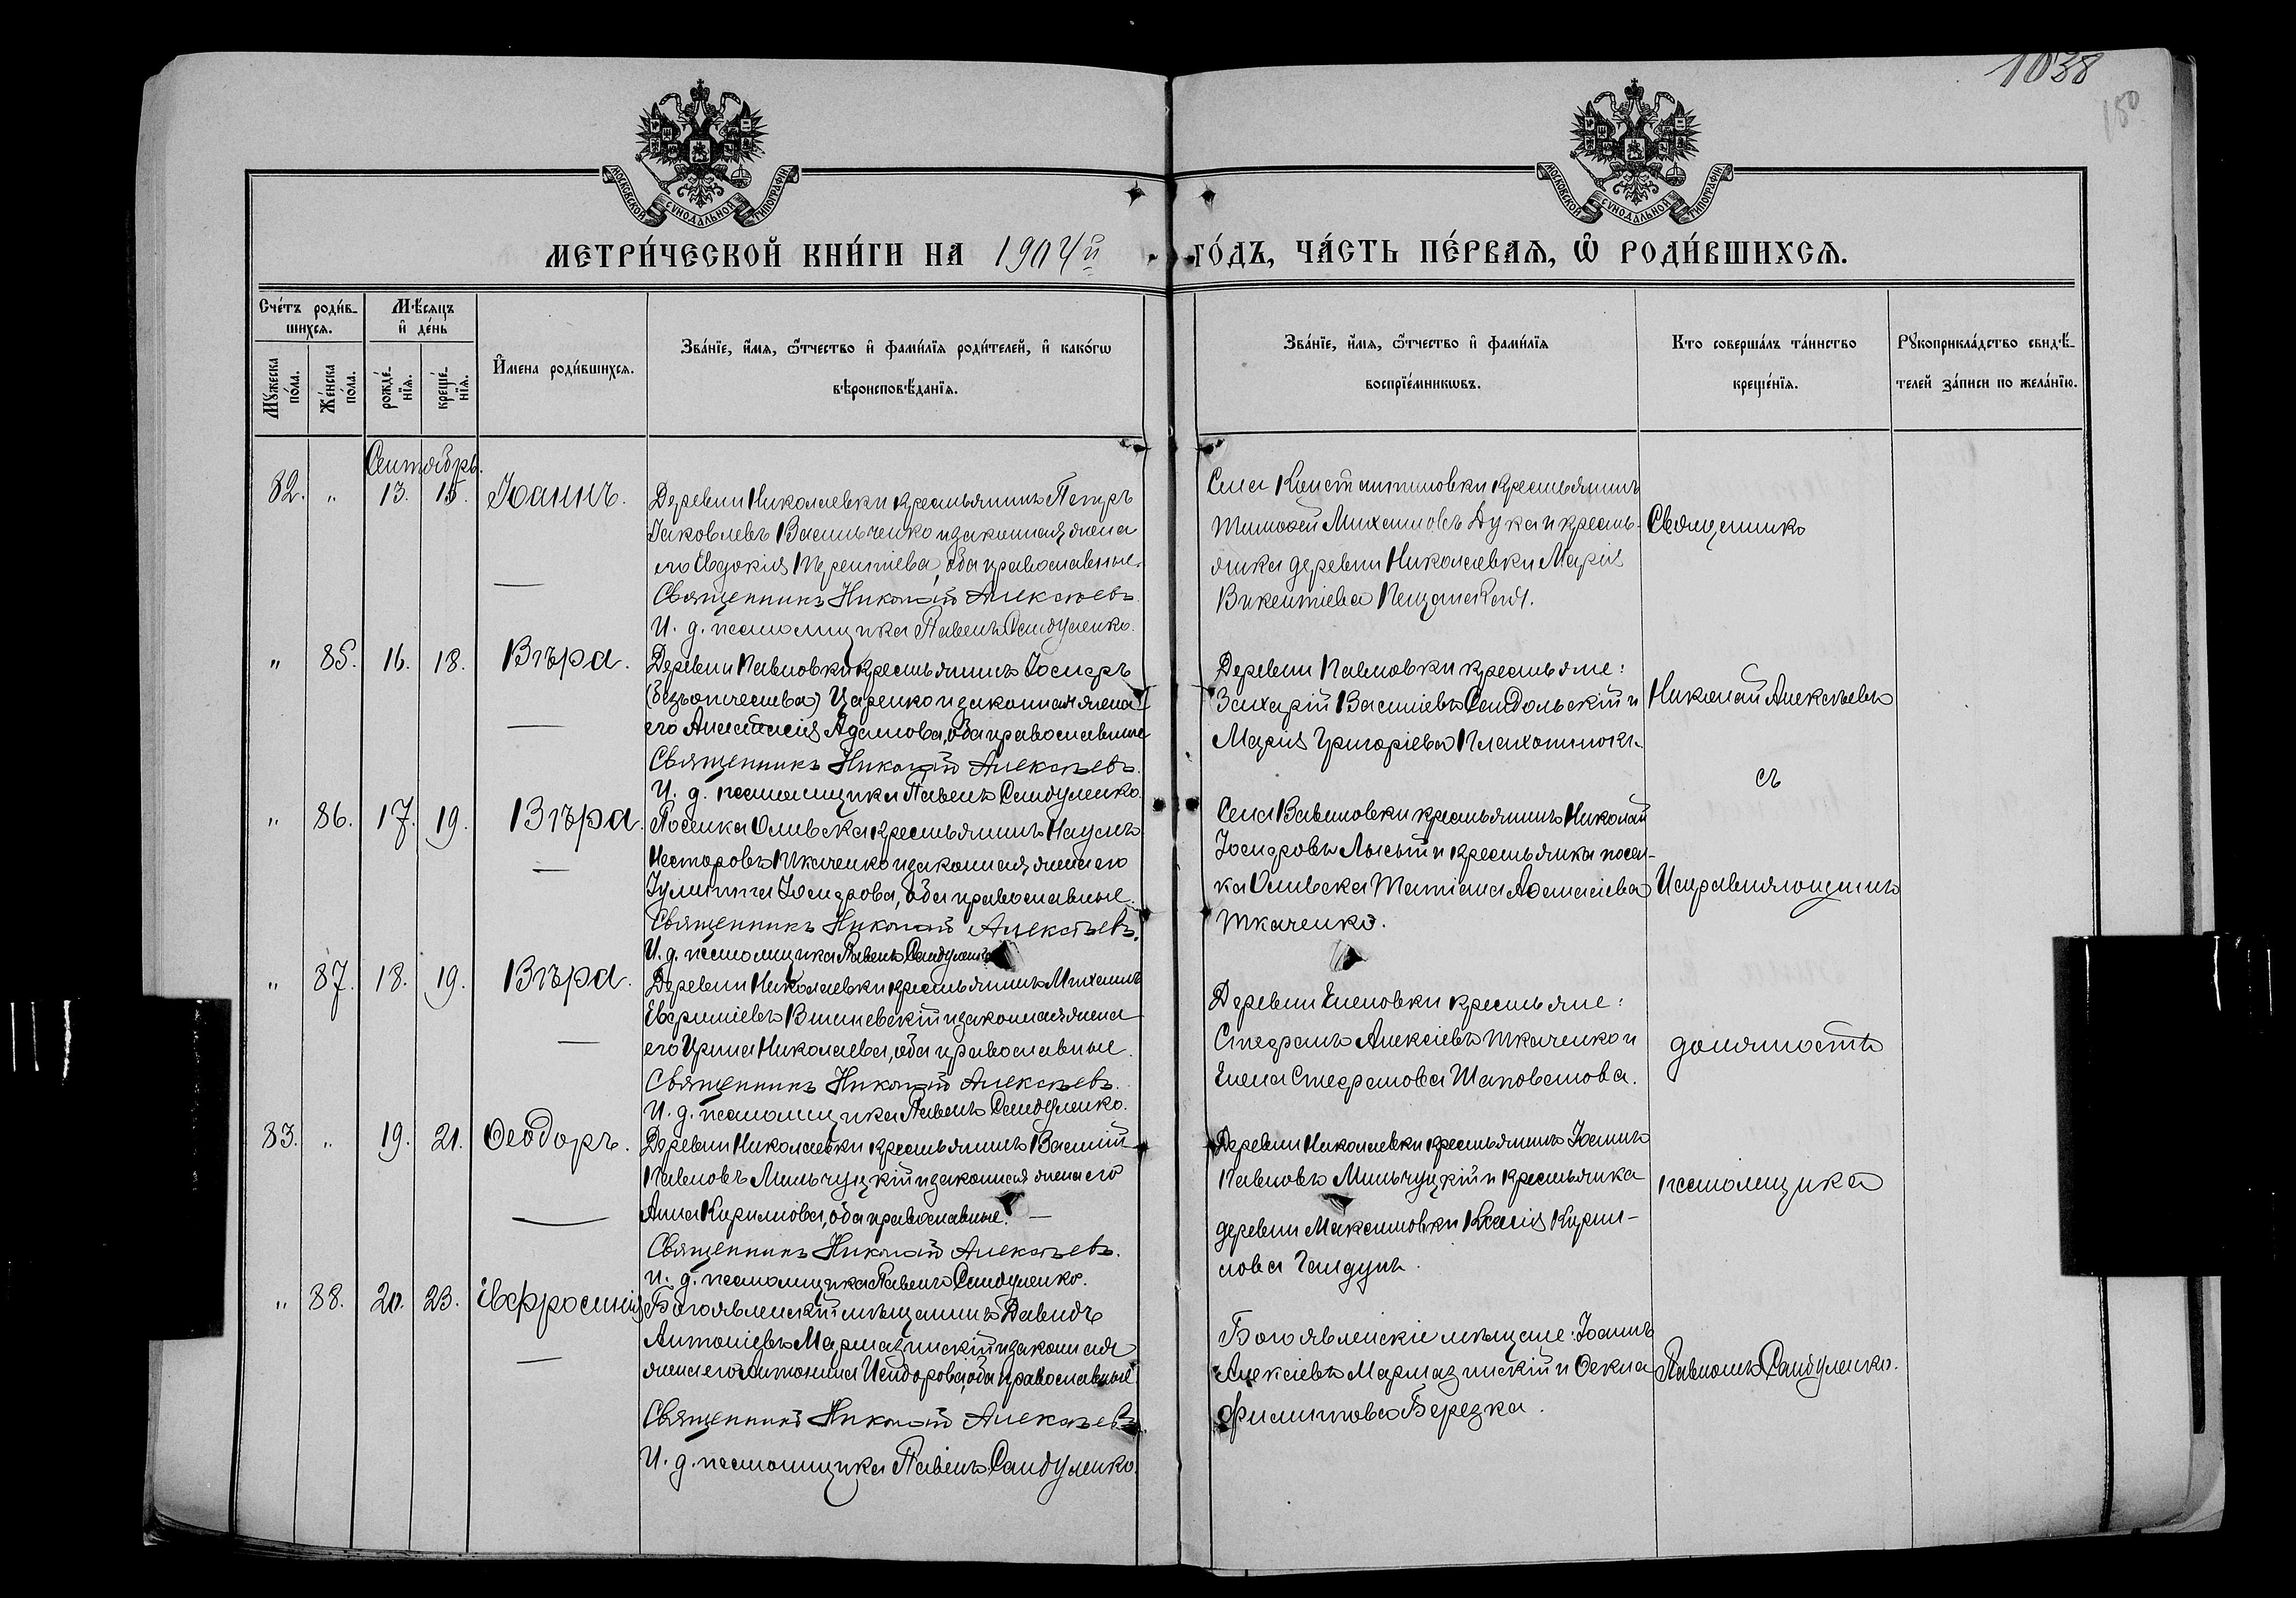 1038
150
МОСКОВСКОЙ СѴНОДАЛЬНОЙ ТИПОГРАФІИ
МОСКОВСКОЙ СѴНОДАЛЬНОЙ ТИПОГРАФІИ
МЕТРИ́ЧЕСКОЙ КНИ́ГИ НА 1904й ГО́ДЪ, ЧА́СТЬ ПЕ́РВАѦ, Ѡ҆ РОДИ́ВШИХСѦ.
Сче́тъ роди́в-
шихсѧ.
Мꙋ́жеска по́ла.
Же́нска по́ла.
Мѣ́сѧцъ
и҆ де́нь
рожде́-
нїѧ.
креще́-
нїѧ.
И҆́мена роди́вшихсѧ.
Зва́нїе, и҆́мѧ, ѻ҆́тчество и҆ фами́лїѧ роди́телей, и҆ како́гѡ
вѣроисповѣ́данїѧ.
Зва́нїе, и҆́мѧ, ѻ҆́тчество и҆ фами́лїѧ
воспрїе́мникѡвъ.
Кто соверша́лъ та́инство
креще́нїѧ.
Рꙋкоприкла́дство свидѣ́-
телей за́писи по жела́нїю.
Сентябрь.
82. " 13. 15. Іоаннъ.
Деревни Николаевки крестьянинъ Петръ
Іаковлевъ Васильченко и законная жена
его Евдокія Терентіева, оба православные.
Священникъ Николай Алексѣевъ.
И. д. псаломщика Павелъ Сандуленко.
Села Константиновки крестьянинъ
Тимоѳей Михаиловъ Дука и кресть-
янка деревни Николаевки Марія
Викентіева
" 85. 16. 18. Вѣра.
Деревни Павловки крестьянинъ Іосифъ
(безъ отчества) Царенко и законная жена
его Анастасія Адамова, оба православные
Священникъ Николай Алексѣевъ.
И. д. псаломщика Павелъ Сандуленко.
Деревни Павловки крестьяне:
Захарій Василіевъ Сандольскій и
Марія Григоріева
" 86. 17. 19. Вѣра.
Поселка Ольвска крестьянинъ Наумъ
Несторовъ Ткаченко и законная жена его
Іулитта Іосифова, оба православные.
Священникъ Николай Алексѣевъ.
И. д. псаломщика Павелъ Сандуленко
Села Вавиловки крестьянинъ Николай
Іосифовъ Лысый и крестьянка посел-
ка Ольвска Татіана Аѳанасіева
Ткаченко.
" 87. 18. 19. Вѣра.
Деревни Николаевки крестьянинъ Михаилъ
Евфиміевъ Вишневскій и законная жена
его Ирина Николаева, оба православные.
Священникъ Николай Алексѣевъ.
И. д. псаломщика Павелъ Сандуленко.
Деревни Еленовки крестьяне:
Стефанъ Алексіевъ Ткаченко и
Елена Стефанова Шаповалова.
83. " 19. 21. Ѳеодоръ.
Деревни Николаевки крестьянинъ Василій
Павловъ Мильчуцкій и законная жена его
Анна Кириллова, оба православные.
Священникъ Николай Алексѣевъ.
И. д. псаломщика Павелъ Сандуленко.
Деревни Николаевки крестьянинъ Іоаннъ
Павловъ Мильчуцкій и крестьянка
деревни Максимовки Ксенія Кирил-
лова Гандунъ.
" 88. 20. 23. Евфросинія
Богоявленскій мѣщанинъ Давидъ
Антоніевъ Мармазинскій и законная
жена его Антонина Исидорова, оба православные
Священникъ Николай Алексѣевъ.
И. д. псаломщика Павелъ Сандуленко.
Богоявленскіе мѣщане: Іоаннъ
Алексіевъ Мармазинскій и Ѳекла
Филиппова Березка.
Священникъ
Николай Алексѣевъ
съ
Исправляющимъ
должность
псаломщика
Павломъ Сандуленко.